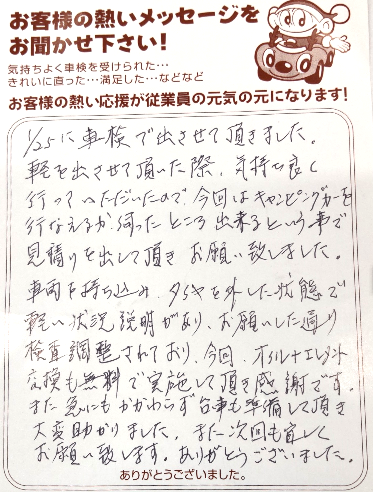 お客様の熱いメッセージを
お聞かせ下さい!
気持ちよく車検を受けられた…
きれいに直った…満足した…などなど
お客様の熱い応援が従業員の元気の元になります!
1/25に車検で出させて頂きました。
軽を出させて頂いた際、気持ち良く
行っていただいたので、今回はキャンピングカーを
行なえるか伺ったところ出来るという事で
見積りを出して頂きお願い致しました。
車両を持ち込み、タイヤを外した状態で
軽い状況説明があり、お願いした通り
検査調整されており、今回、オイル+エレメント
交換も無料で実施して頂き感謝です。
また急にもかかわらず台車も準備して頂き
大変助かりました。また次回も宜しく
お願い致します。ありがとうございました。
ありがとうございました。